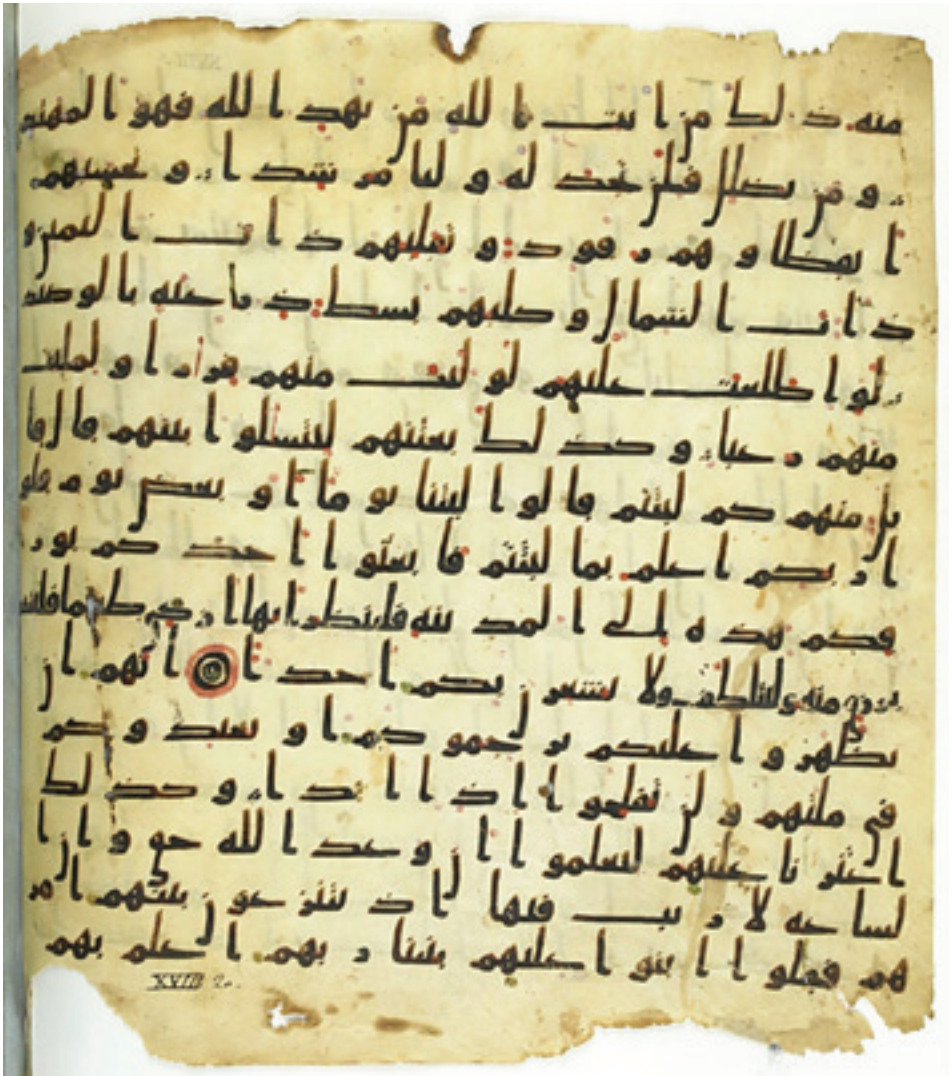 منه ذلك من ايت الله من يهد الله فهو المهتد
و من يضلل فلن تجد له وليا مرشدا و تحسبهم
ايقظا و هم رقود و نقلبهم ذات اليمين و
ذات الشمال و كلبهم بسط ذراعيه بالوصيد
لو اطلعت عليهم لوليت منهم فرارا و لملئت
منهم رعبا و كذلك بعثنهم ليتسلوا بينهم قال قا
يل منهم كم لبثتم قالوا لبثنا يوما او بعض يوم قلو
ا ربكم اعلم بما لبثتم فابعثوا احدكم بور
قكم هذه الى المدينه فلينظر ايها ازكى طعما
برزق منه وليتلطف ولا يشعرن بكم احدا انهم ان
يظهروا عليكم يرجموكم او يعيدوكم
في ملتهم و لن تفلحوا اذا ابدا و كذلك
اعثرنا عليهم ليعلموا ان وعد الله حق و ان ا
لساعه لا ريب فيها اذ يتنزعون بينهم امر
هم فقلوا ابنوا عليهم بنينا ربهم اعلم بهم